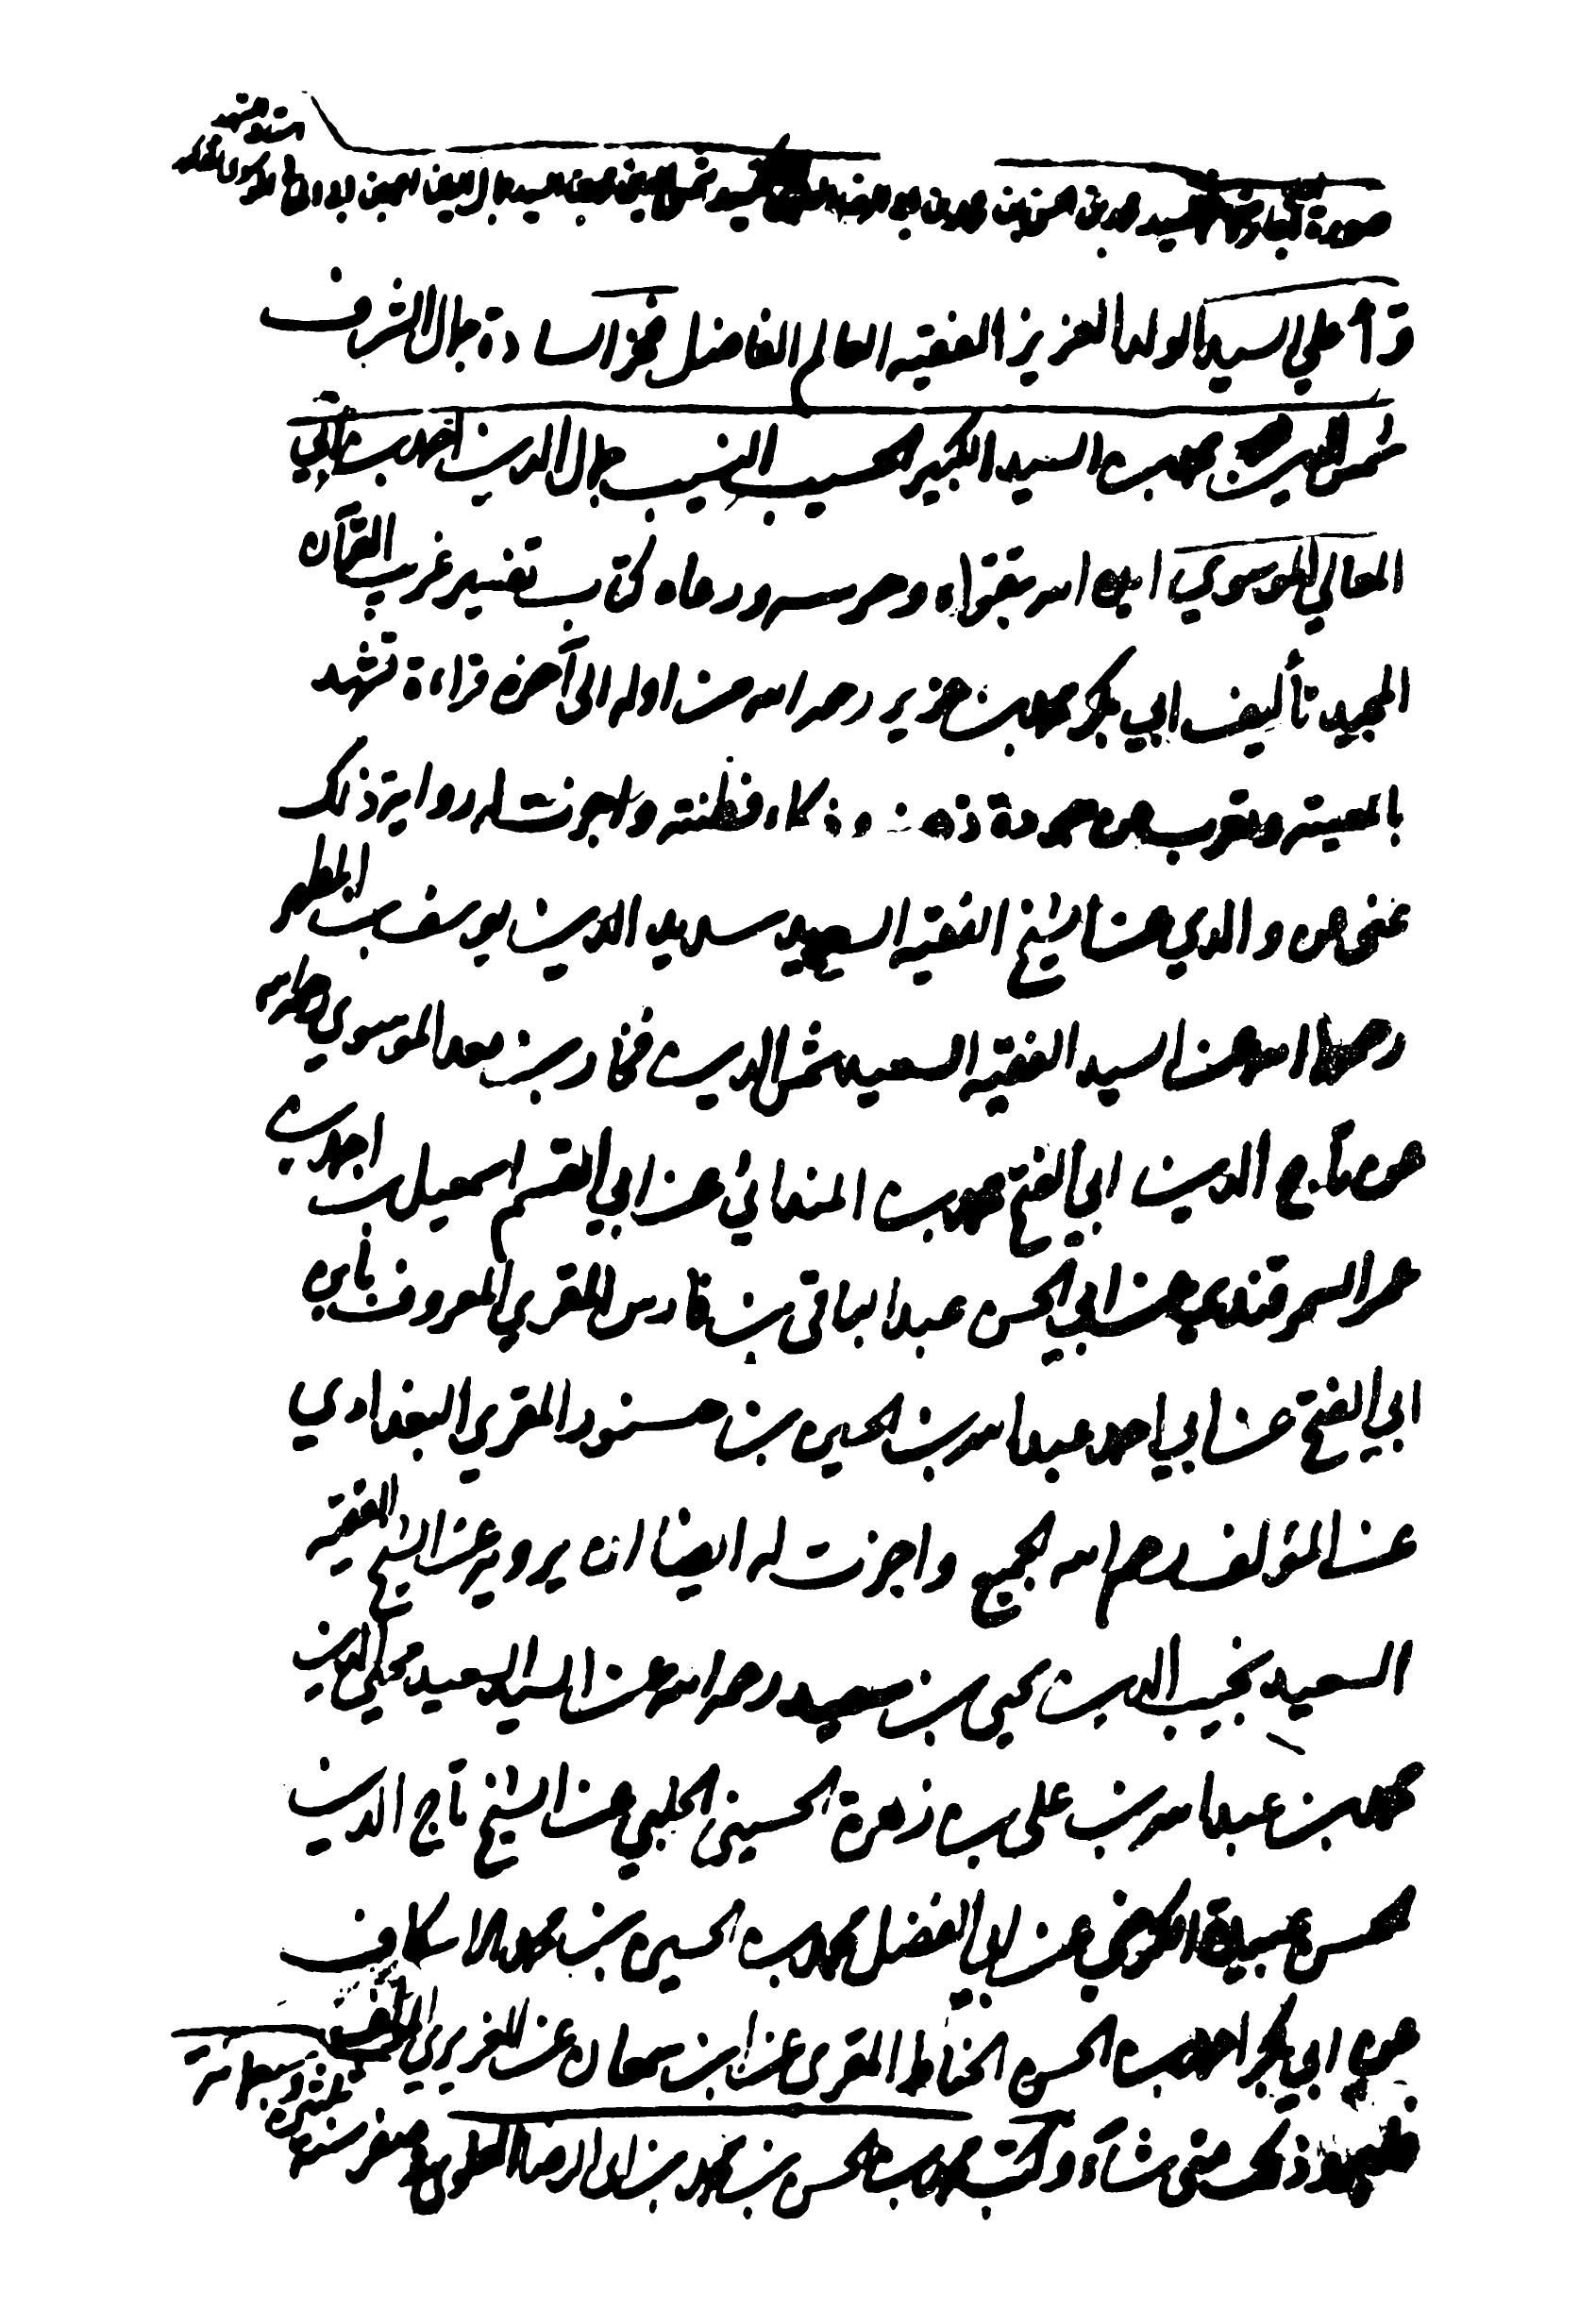 صورة اجازة السيد محمد بن الحسن بن محمد بن ابي الرضا العلوي للسيد شمس الدين محمد بن السيد جمال الدين احمد بن ابي المعالي الموسوي
قرأ علي السيد الولد العزيز الفقيه العالم الفاضل فخر السادة جمال الشرف
شمس الدين محمد بن السيد الكبير الحسيب النسيب جمال الدين احمد بن ابي
المعالي الموسوي ايده الله بتقواه وحرسه ورعاه كتاب تفسير غريب القرآن
المجيد تأليف ابي بكر محمد بن عزيز رحمه الله من اوله الى آخره قراءة تشهد
بالمعيته وتعرب عن جودة ذهنه وذكاء فطنته واجزت له رواية ذلك
عني عن والدي عن الشيخ الفقيه السعيد سديد الدين يوسف بن المطهر
رحمهما الله عن السيد الفقيه السعيد شمس الدين فخار بن معد الموسوي رحمه الله
عن تاج الدين ابي الفتح محمد بن المندائي عن ابي القسم اسمعيل بن احمد بن
عمر السمرقندي عن ابي الحسن عبد الباقي بن فارس المقري المعروف بابن
ابي الفتح عن ابي احمد عبد الله بن الحسين بن حسنور المقري البغدادي
عن المؤلف رحم الله الجميع واجزت له ايضا ان يرويه عن الشيخ الفقيه
السعيد نجيب الدين يحيى بن سعيد رحمه الله عن السيد السعيد محيي الدين
محمد بن عبد الله بن علي بن زهرة الحسيني الحلبي عن الشيخ تاج الدين
الحسن عن ابي الفضل محمد بن الحسين بن محمد الاسكاف
عن ابي بكر احمد بن الحسن الخياط المقري عن ابن سمعان عن العزيري المؤلف
فليرو ذلك متى شاء وكتب محمد بن الحسن بن محمد بن ابي الرضا العلوي في صفر سنة ثلثين وسبعمائة